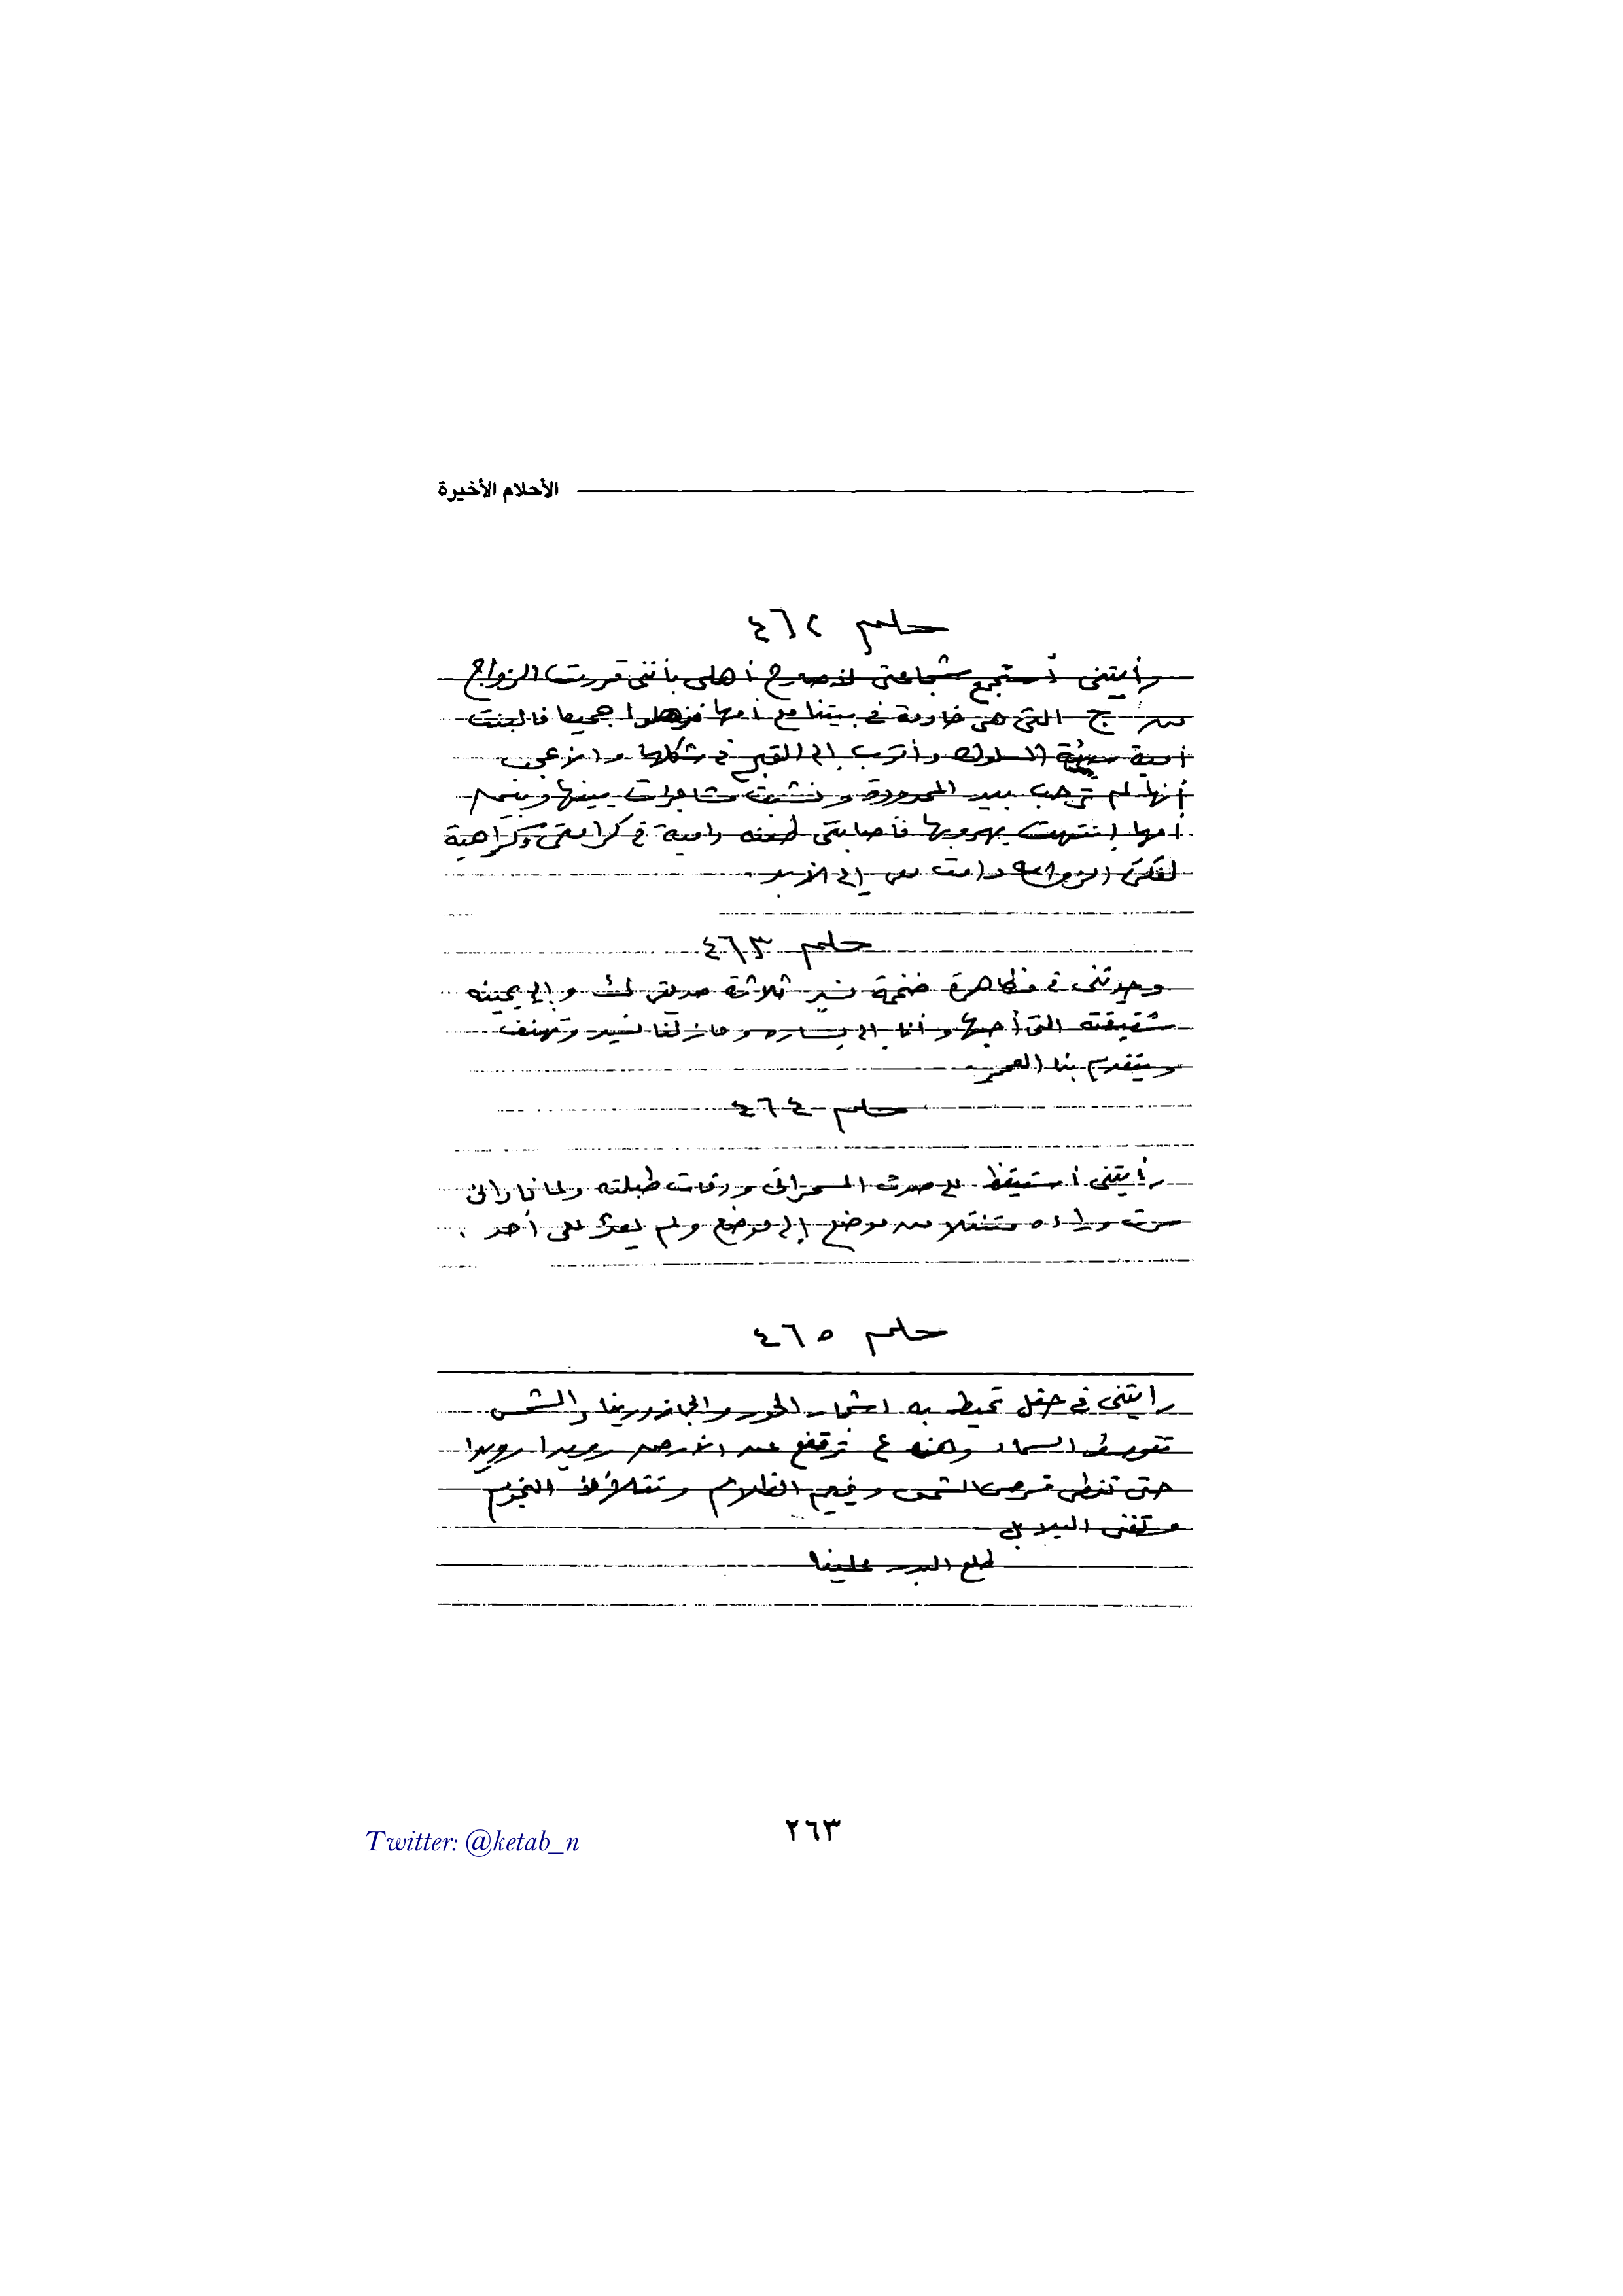 الأحلام الأخيرة
حلم ٤٦٢
رأيتنى أستجمع شجاعتى لأصارح أهلى بأننى قررت الزواج
من ج التى هى خادمة فى بيتنا مع أمها فذهلوا جميعا فالبنت
أمية سيئة السلوك وأقرب إلى القبح فى شكلها وازعجنى
أنها لم ترحب بيد الممدودة ونشبت مشاجرات بينها وبين
أمها إنتهت بهروبها فأصابتنى طعنه دامية فى كرامتى وكراهية
لفكرة الزواج دامت معى إلى الأبد
حلم ٤٦٣
وجدتنى فى مظاهرة ضخمة نسير ثلاثة صديقى وإلى يمينه
شقيقته التى أحبها وأنا إلى يساره ومازلنا نسير ونهتف
ويتقدم بنا العمر
حلم ٤٦٤
رأيتنى أستيقظ على صوت المسحراتى ودقات طبلته
سرت وراءه متنقلا من موضع إلى موضع ولم يعثر على أحد .
حلم ٤٦٥
رايتنى فى حقل تحيط به اشجار الحور والجازورينا والشمس
تتوسط السماء وهند ع ترتفع عند الأرض رويدا رويدا
حتى تغطى قرص الشمس ويخيم الظلام وتتلألأ النجوم
وتغنى البلابل
طلع البدر علينا
٢٦٣
Twitter: @ketab_n